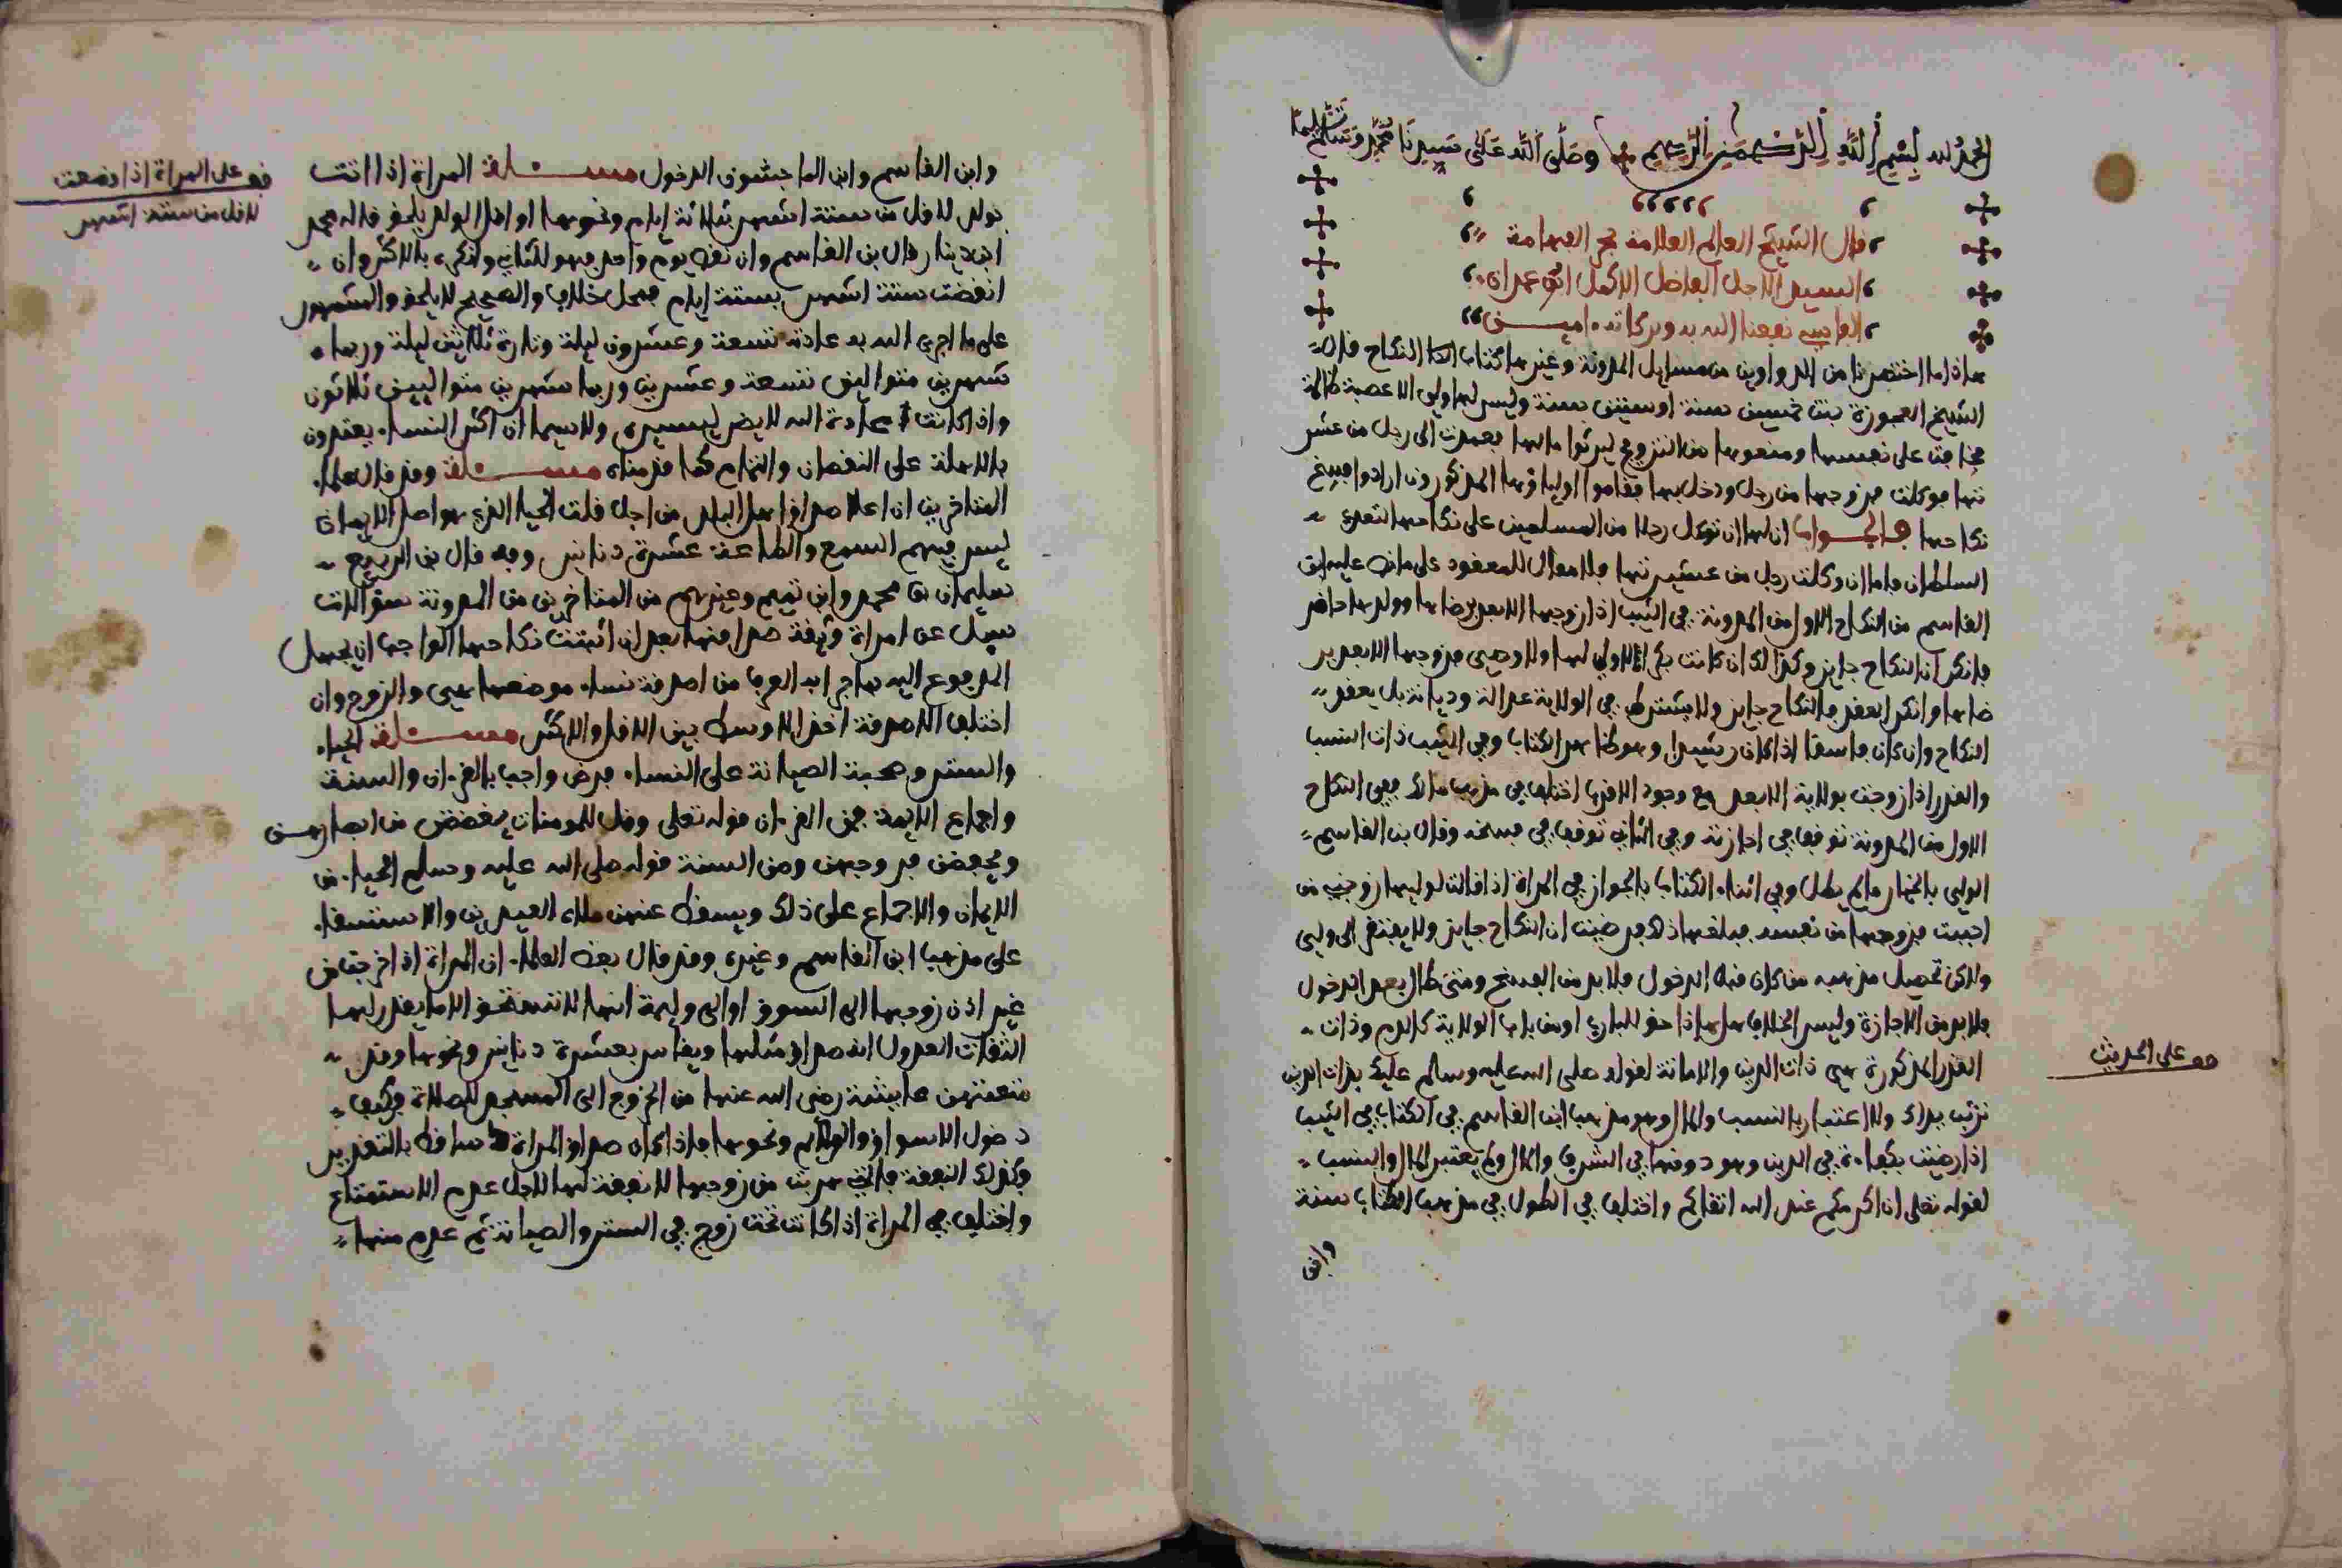 الحمد لله بسم الله الرحمن الرحيم وصلى الله على سيدنا محمد وسلم تسليما
قال الشيخ العالم العلامة بحر الفهامة
السيد الاجل الفاضل الاكمل ابي عمران
الفاسي نفعنا الله به وبركاته امين
هاذا ما اختصرنا من الدواوين من مسايل المدونة وغيرها كتاب النكاح قال
الشيخ العجوزة بنت خمسين سنة او ستين سنة وليس لها ولي الا عصبة ظالمة
خافت على نفسها ومنعوها من التزويج ليرثوا مالها فعمدت الى رجل من عشير
تها فوكلت فزوجها من رجل ودخل بها فقاموا اولياؤها المذكورون ارادوا فسخ
نكاحها فالجواب ان لها ان توكل رجلا من المسلمين على نكاحها لتعدي
السلطان فاما ان وكلت رجل من عشيرتها فلا مقال للمعقود على ما نص عليه ابن
القاسم من النكاح الاول من المدونة في الثيب اذا زوجها الابعد برضاها وولدها حاضر
فانكر ان النكاح جايز وكذالك ان كانت بكر لا ولي لها ولا وصي فزوجها الابعد بر
ضاها وانكر العقد فالنكاح جايز ولا يشترط في الولاية عدالة وديانة بل يعقد
النكاح وان كان فاسقا اذا كان رشيدا وهو ظاهر الكتاب وفي الثيب ذات النسب
والقدر اذا زوجت بولاية الابعد مع وجود الاقرب اختلف في مذهب مالك ففي النكاح
الاول من المدونة توقف في اجازته وفي الثاني توقف في فسخه وقال بن القاسم
الولي بالخيار مالم يطل وفي اثناء الكتاب بالجواز في المراة اذا قالت لوليها زوجني من
احببت فزوجها من نفسه فبلغها ذلك فرضيت ان النكاح جايز ولا يفتقر الى ولي
ولاكن تحصيل مذهبه من كان قبل الدخول فلا بد من الفسخ ومتى طال بعد الدخول
فلا بد من الاجازة وليس الخلاف هل هاذا حق للباري او من باب الولاية كالدم وذات
القدر المذكورة هي ذات الدين والامانة لقوله صلى الله عليه وسلم عليك بذات الدين
تربت يداك ولا اعتبار بالنسب والمال وهو مذهب ابن القاسم في الكتاب في الثيب
اذا رضيت بكفاءة في الدين وهو دونها في الشرف والمال ولم يعتبر المال والنسب
لقوله تعلى ان اكرمكم عند الله اتقاكم واختلف في الطول في مذهب الكتاب سنة
وابن
قف على الحديث
وابن القاسم وابن الماجشون الدخول مسئلة المراة اذا اتت
بولد لاقل من ستة اشهر بثلاثة ايام ونحوها او اقل الولد يلحق قاله محمد
ابن دينار قال بن القاسم وان نقص يوم واحد فهو للثاني وانكره بالاكثر وان
انقضت ستة اشهر بستة ايام فمحل خلاف والصحيح لا يلحق والمشهور
على ما اجرى الله به عادته تسعة وعشرون ليلة وتارة ثلاثين ليلة وربما
شهرين متواليين تسعة وعشرين وربما شهرين متواليين ثلاثون
واذا كانت عادة الله لا يضر ليسيره ولا سيما ان اكثر النساء يعتدون
بالاهلة على النقصان والتمام كما قدمناه مسئلة وقد قال علماء
المتاخرين ان اعلا صداق اهل البلد من اجل قلت الحياء الذي هو اصل الايمان
ليس فيهم السمع والطاعة عشرة دنانير وبه قال بن الربيع
سليمان بن محمد وابن تميم وغيرهم من المتاخرين من المدونة سؤالات
سيل عن امراة وثيقة صداقها بعد ان اثبتت نكاحها الواجب ان يجهل
المرجوع اليه هاج ابه العرب من اصدقة نساء موضعها هي والزوج وان
اختلف الاصدقة اخذ الاوسط بين الاقل والاكثر مسئلة الحياء
والستر وصحبة الصيانة على النساء فرض واجب بالقرءان والسنة
واجماع الايمة فمن القرءان قوله تعلى وقل للمومنات يغضضن من ابصارهن
ويحفظن فروجهن ومن السنة قوله صلى الله عليه وسلم الحياء من
الايمان والاجماع على ذلك ويسقط عنهن صلاة العيدين والاستسقاء
على مذهب ابن القاسم وغيره وقد قال بعض العلماء ان المراة اذا خرجت من
غير اذن زوجها الى السوق او الى وليمة انها لا تستحق الا ما يقدر لها
الثقات العدول انه صداق مثلها ويقاس بعشرة دنانير ونحوها وقد
منعتهن عايشة رضي الله عنها من الخروج الى المسجد للصلاة فكيف
دخول الاسواق والولايم ونحوها فاذا كان صداق المراة ساقط بالتقدير
وكذلك النفقة فالتي هربت من زوجها لا نفقة لها لاجل عدم الاستمتاع
واختلف في المراة اذا كانت تحت زوج في الستر والصيانة ثم عدم منها
قف على المراة اذا وضعت
لاقل من ستة اشهر